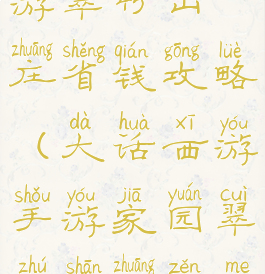 游翠竹山
zhuāng shěng qián gōng lüè
庄省钱攻略
dà huà xī yóu
（大话西游
shǒu yóu jiā yuán cuì
手游家园翠
zhú shān zhuāng zěn me